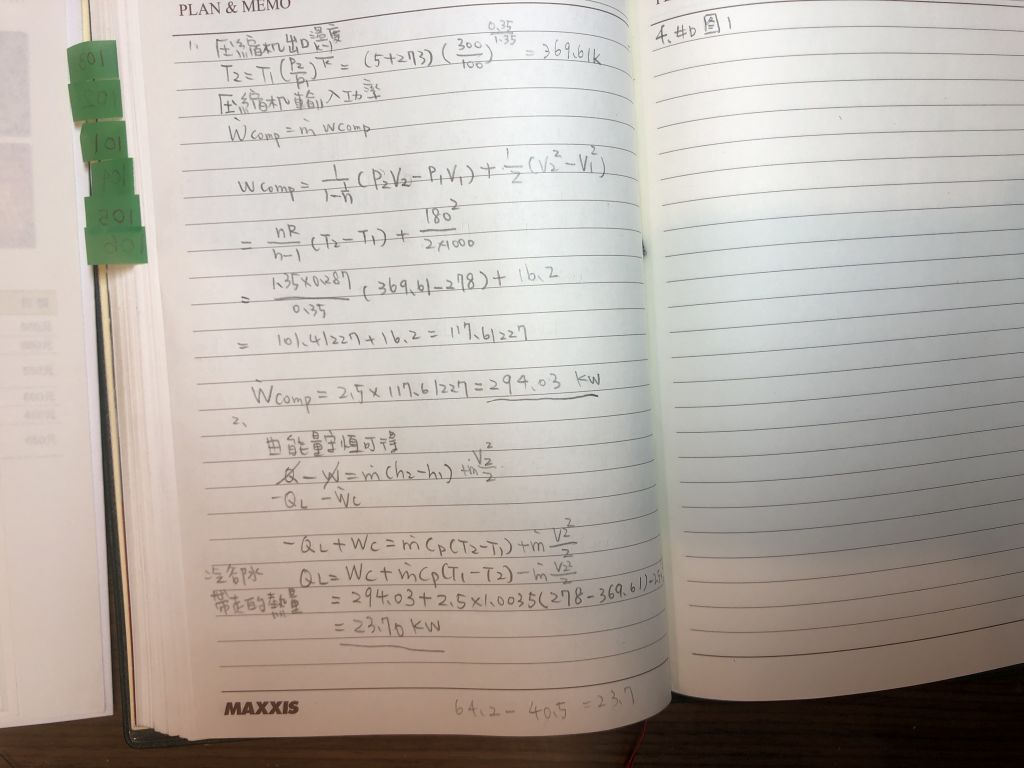 PLAN & MEMO
1、 压縮机出口溫度
T2 = T1 (P2/P1)^(k-1)/k = (5+273) (300/100)^0.35/1.35 = 369.61k
压縮机輸入功率
Ẇcomp = ṁ wcomp
wcomp = 1/(1-n) (P2V2 - P1V1) + 1/2 (V2² - V1²)
= nR/(n-1) (T2 - T1) + 180²/(2×1000)
= 1.35×0.287/0.35 (369.61 - 278) + 16.2
= 101.41227 + 16.2 = 117.61227
Ẇcomp = 2.5 × 117.61227 = 294.03 kW
2、
由能量守恒可得
Q - W = ṁ(h2 - h1) + ṁ V2²/2
-QL -Ẇc
-QL + Wc = ṁ Cp(T2 - T1) + ṁ V2²/2
冷卻水 QL = Wc + ṁCp(T1 - T2) - ṁ V2²/2
帶走的熱量 = 294.03 + 2.5 × 1.0035(278 - 369.61) -
= 23.70 kW
MAXXIS
64.2 - 40.5 = 23.7
4. #D 图 1
103
102
101
104
105
106